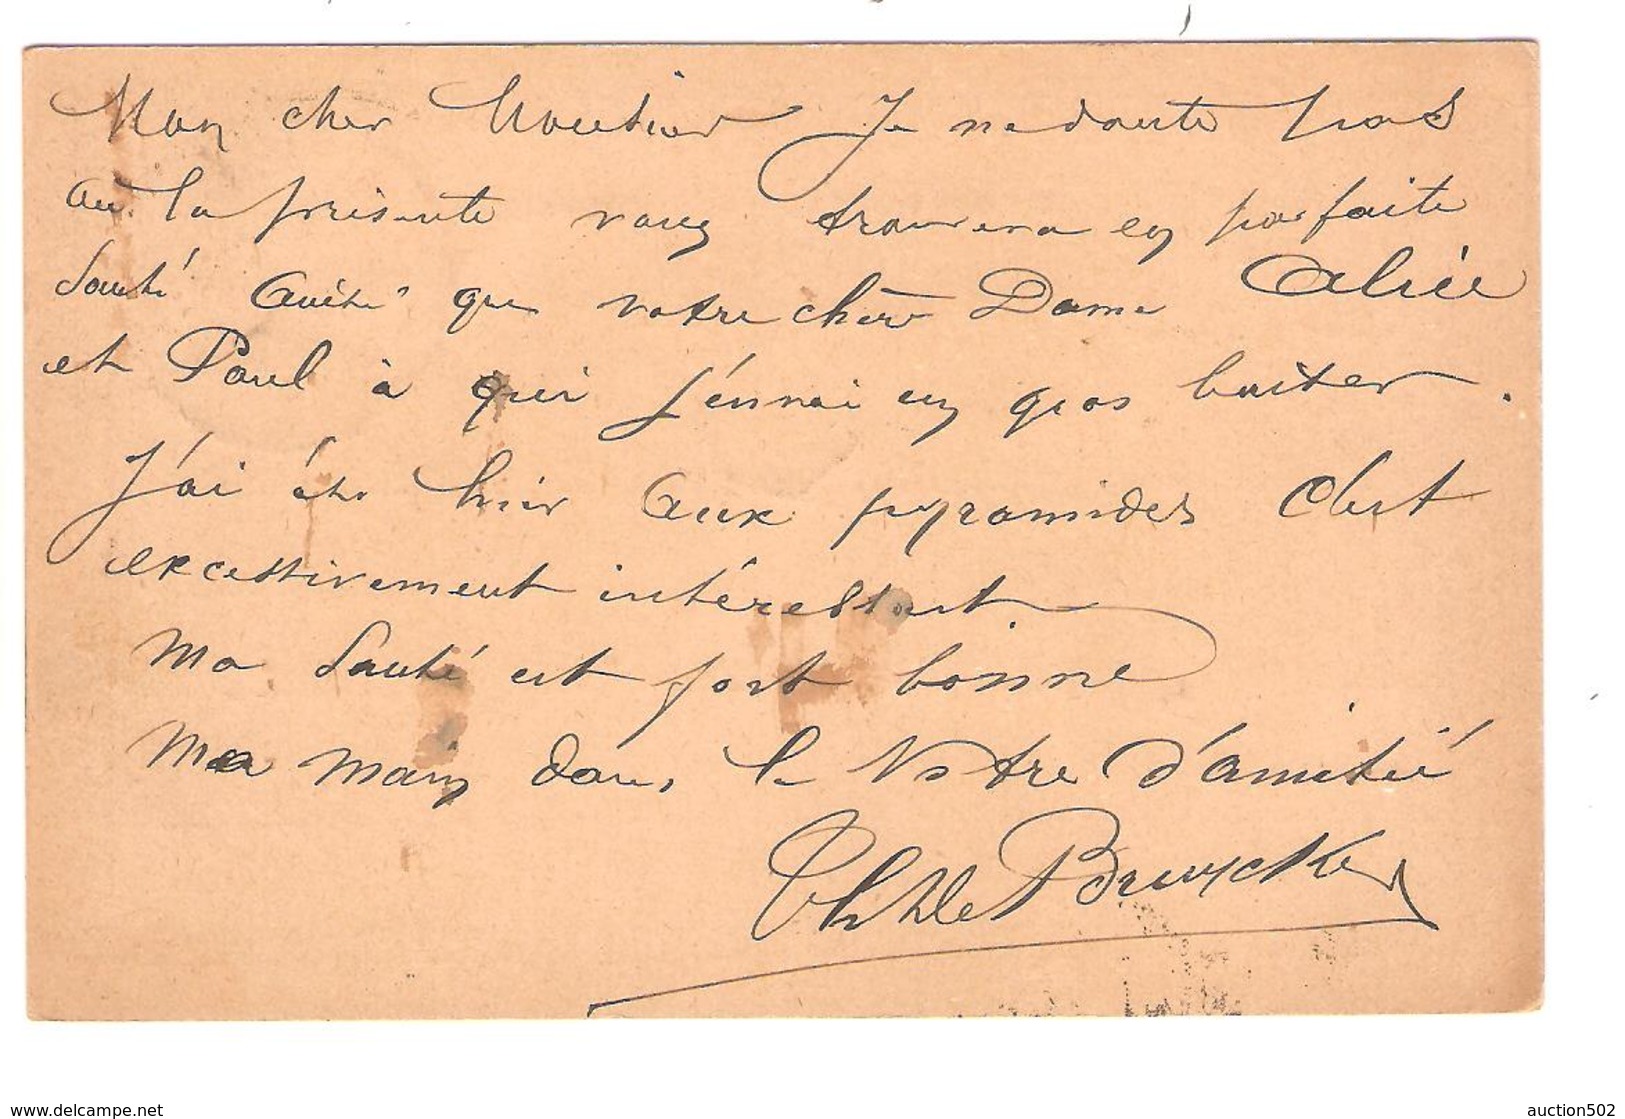 Mon cher Moutier Je ne doute pas
que la présente vous trouvera en parfaite
santé ainsi que votre chère Dame Alice
et Paul à qui j'envoi un gros baiser.
J'ai été hier aux pyramides C'est
excessivement intéressant
Ma santé est fort bonne
Ma main dans la Votre d'amitié
De Bruycker
www.delcampe.net
auction502